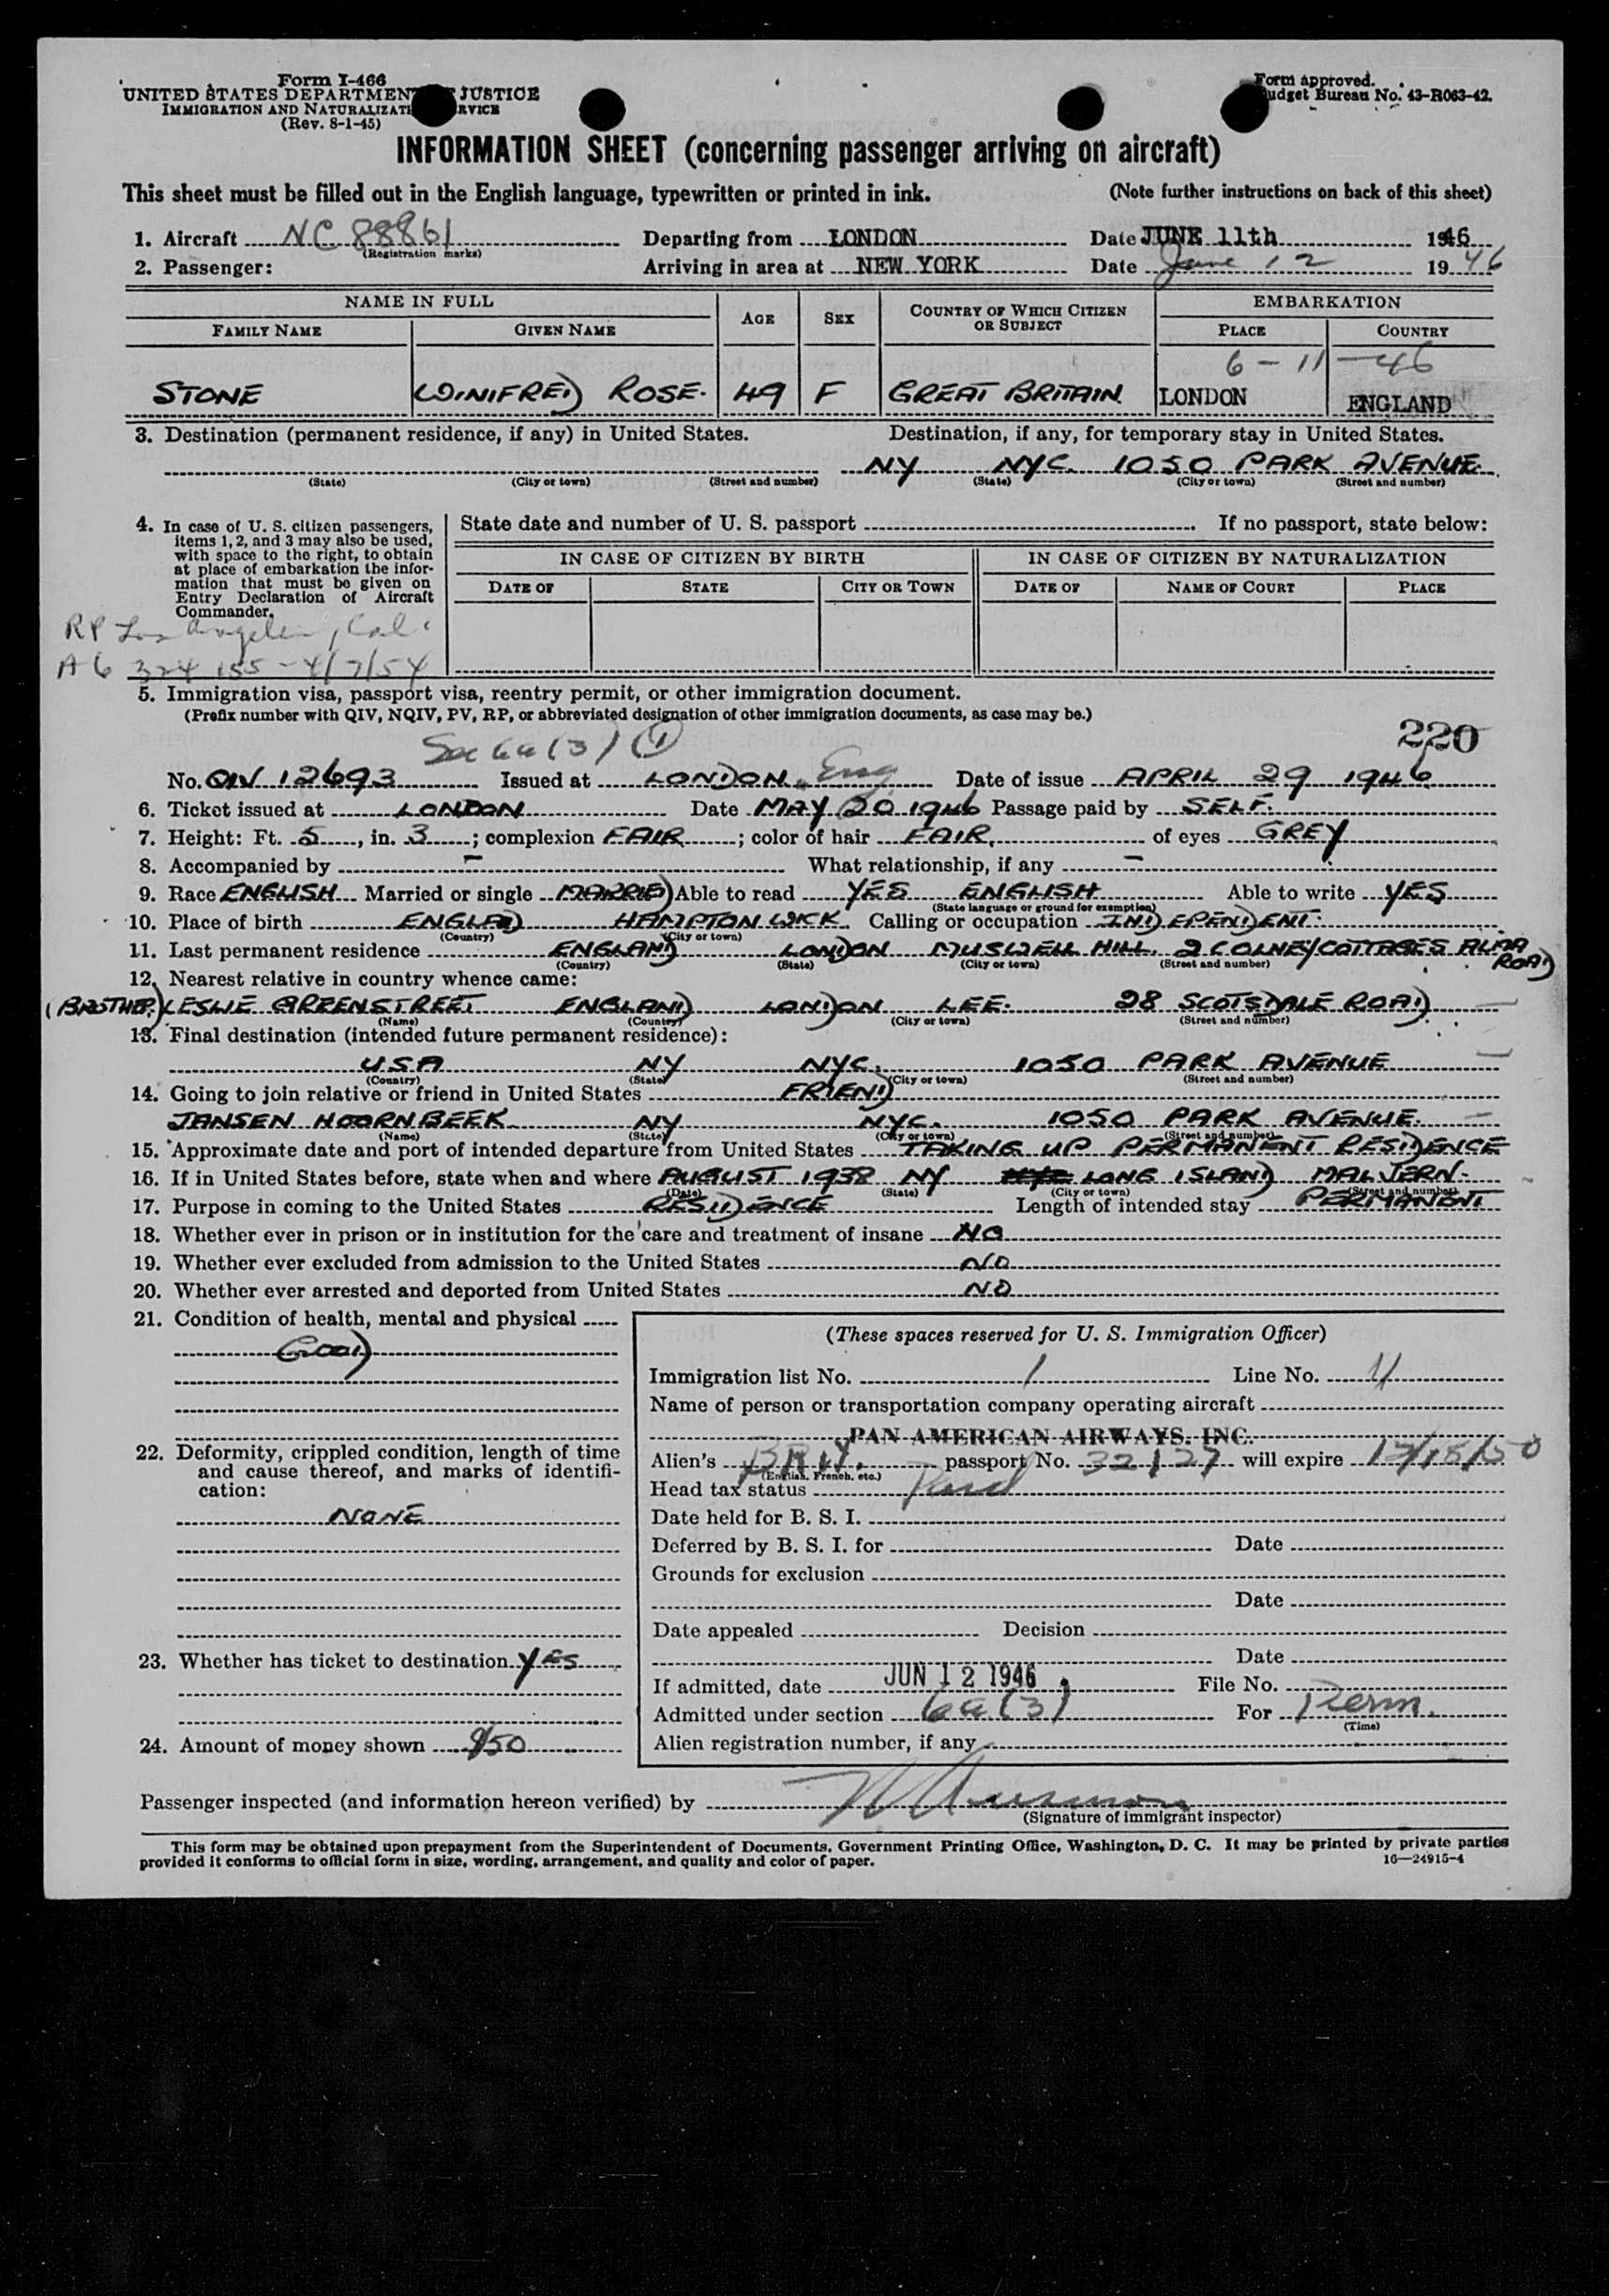 Form I-466
UNITED STATES DEPARTMENT JUSTICE
IMMIGRATION AND NATURALIZATI RVICE
(Rev. 8-1-45)
Form approved.
udget Bureau No. 43-R063-42.
INFORMATION SHEET (concerning passenger arriving on aircraft)
This sheet must be filled out in the English language, typewritten or printed in ink. (Note further instructions on back of this sheet)
1. Aircraft NC 88861 Departing from LONDON Date JUNE 11th 1946
(Registration marks)
2. Passenger: Arriving in area at NEW YORK Date June 12 1946
NAME IN FULL AGE SEX COUNTRY OF WHICH CITIZEN OR SUBJECT EMBARKATION
FAMILY NAME GIVEN NAME PLACE COUNTRY
6-11-46
STONE WINIFRED ROSE. 49 F GREAT BRITAIN LONDON ENGLAND
3. Destination (permanent residence, if any) in United States. Destination, if any, for temporary stay in United States.
NY NYC. 1050 PARK AVENUE.
(State) (City or town) (Street and number) (State) (City or town) (Street and number)
4. In case of U. S. citizen passengers, items 1, 2, and 3 may also be used, with space to the right, to obtain at place of embarkation the information that must be given on Entry Declaration of Aircraft Commander.
State date and number of U. S. passport . If no passport, state below:
IN CASE OF CITIZEN BY BIRTH IN CASE OF CITIZEN BY NATURALIZATION
DATE OF STATE CITY OR TOWN DATE OF NAME OF COURT PLACE
RP Los Angeles, Cal.
A6 324 155 - 4/7/54
5. Immigration visa, passport visa, reentry permit, or other immigration document.
(Prefix number with QIV, NQIV, PV, RP, or abbreviated designation of other immigration documents, as case may be.)
220
Sec 6a(3) (1)
No. QIV 12693 Issued at LONDON, Eng Date of issue APRIL 29 1946
6. Ticket issued at LONDON Date MAY 20 1946 Passage paid by SELF.
7. Height: Ft. 5, in. 3; complexion FAIR; color of hair FAIR. of eyes GREY
8. Accompanied by - What relationship, if any -
9. Race ENGLISH Married or single MARRIED Able to read YES ENGLISH Able to write YES
(State language or ground for exemption)
10. Place of birth ENGLAD HAMPTON WICK Calling or occupation INDEPENDENT.
(Country) (City or town)
11. Last permanent residence ENGLAND LONDON MUSWELL HILL. 2 COLNEY COTTAGES ALMA ROAD
(Country) (State) (City or town) (Street and number)
12. Nearest relative in country whence came:
(BROTHER.) LESLIE GREENSTREET ENGLAND LONDON LEE. 28 SCOTSDALE ROAD
(Name) (Country) (City or town) (Street and number)
13. Final destination (intended future permanent residence):
USA NY NYC. 1050 PARK AVENUE
(Country) (State) (City or town) (Street and number)
14. Going to join relative or friend in United States FRIEND
JANSEN HOORNBEEK NY NYC. 1050 PARK AVENUE.
(Name) (State) (City or town) (Street and number)
15. Approximate date and port of intended departure from United States TAKING UP PERMANENT RESIDENCE
16. If in United States before, state when and where AUGUST 1938 NY LONG ISLAND MALVERN.
(Date) (State) (City or town) (Street and number)
17. Purpose in coming to the United States RESIDENCE Length of intended stay PERMANENT
18. Whether ever in prison or in institution for the care and treatment of insane NO
19. Whether ever excluded from admission to the United States NO
20. Whether ever arrested and deported from United States NO
21. Condition of health, mental and physical
GOOD
22. Deformity, crippled condition, length of time and cause thereof, and marks of identification:
NONE
23. Whether has ticket to destination YES
24. Amount of money shown $50
(These spaces reserved for U. S. Immigration Officer)
Immigration list No. 1 Line No. 11
Name of person or transportation company operating aircraft
PAN AMERICAN AIRWAYS. INC.
Alien's Brit. passport No. 32127 will expire 12/18/50
(English, French, etc.)
Head tax status Paid
Date held for B. S. I.
Deferred by B. S. I. for Date
Grounds for exclusion
Date
Date appealed Decision
Date
If admitted, date JUN 12 1946 File No.
Admitted under section 6a(3) For Perm.
(Time)
Alien registration number, if any
Passenger inspected (and information hereon verified) by
(Signature of immigrant inspector)
This form may be obtained upon prepayment from the Superintendent of Documents, Government Printing Office, Washington, D. C. It may be printed by private parties
provided it conforms to official form in size, wording, arrangement, and quality and color of paper. 16—24915-4